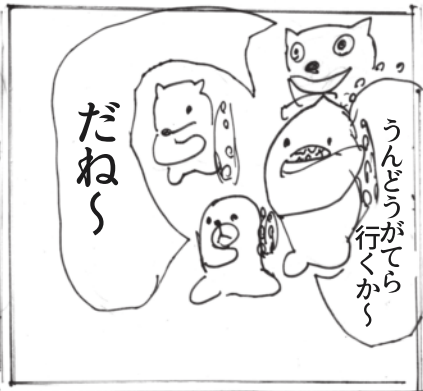 うんどうがてら
行くか～
だね～